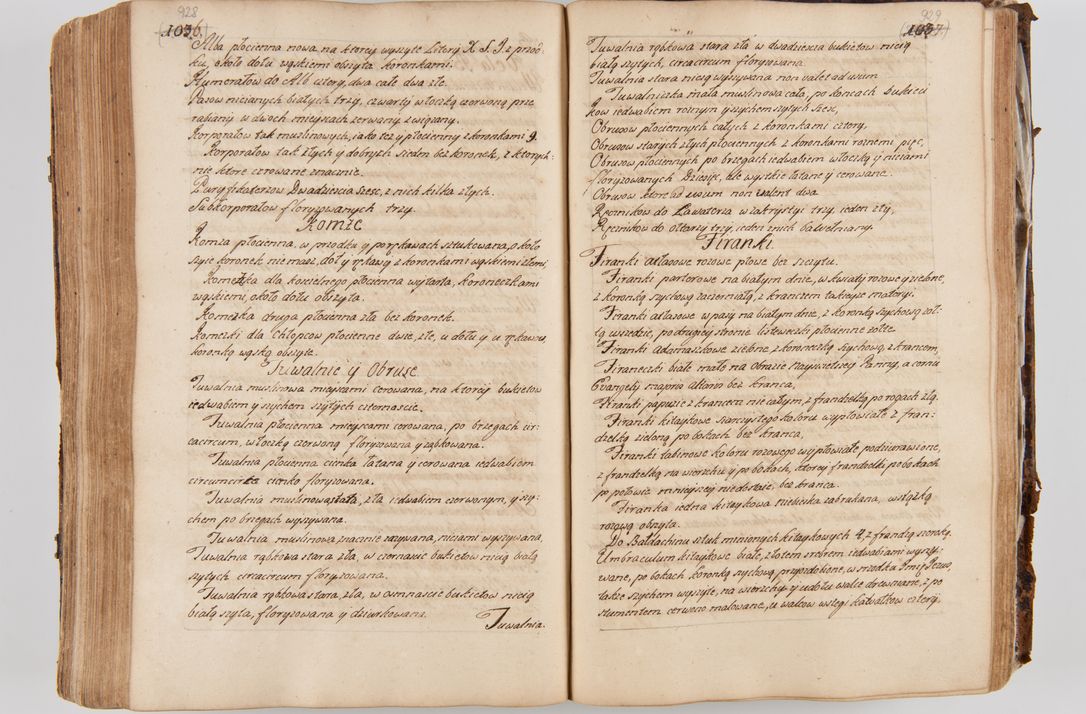 928
1036.
Alba płocienna nowa, na ktorey wyszyte Litery X. S. J. z przod
ku, około dołu wąskiemi obszyta koronkami.
Humerałow do Alb cztery, dwa całe dwa złe.
Pasow nicianych białych trzy, czwarty włoczką czerwoną prze
rabiany w dwoch mieyscach zerwany związany.
Korporałow tak muszlinowych, iako tez y płocienny z koronkami 9.
Korporałow tak złych y dobrych siedm bez koronek, z ktorych
nie ktore cerowane znacznie.
Puryfikaterzow Dwadziescia Szesc, z nich kilka złych.
Subkorporałow floryzowanych trzy.
Komże
Komza płocienna, w przodku y po rękawach sztukowana, około
szyie koronek nie masz, doł y rękawy z koronkami wąskiemi złemi
Komeżka dla koscielnego płocienna wytarta, koroneczkami
wąskiemi, około dołu obszyta.
Komeżka druga płocienna zła bez koronek.
Komeżki dla Chłopcow płocienne dwie, złe, u dołu y u rękawow
koronką wąską obszyte.
Tuwalnie y Obruse
Tuwalnia muslinowa mieyscami cerowana, na ktorey bukietow
iedwabiem y szychem szytych czternascie.
Tuwalnia płocienna mieyscami cerowana, po brzegach cir-
cacircum, włoczką czerwoną floryzowana y ząbkowana.
Tuwalnia płocienna cienka łatana y cerowana iedwabiem
circumcirca cienko floryzowana.
Tuwalnia muslinowa stara, zła iedwabiem czerwonym, y szy-
chem po brzegach wyszywana.
Tuwalnia muslinowa znacznie zszywana, niciami wyszywana,
Tuwalnia rąbkowa stara zła, w czernascie bukietow nicią białą
szytych circacircum floryzowana.
Tuwalnia rąbkowa stara, zła, w osmnascie bukietow nicią
białą szyta, floryzowana y dziurkowana.
Tuwalnia.
929
1037.
Tuwalnia rąbkowa stara zła w dwadziescia bukietow nicią
białą szytych, circacircum floryzowana.
Tuwalnia stara nicią wyszywana non valet ad usum
Tuwalniczka mała muslinowa cała, po koncach bukieci
kow iedwabiem roznym y szychem szytych szesc,
Obrusow płociennych całych z koronkami cztery,
Obrusow starych złych płociennych z koronkami roznemi pięc,
Obrusow płociennych po brzegach iedwabiem włoczką y niciami
floryzowanych Dziesięc, ale wszystkie łatane y cerowane.
Obrusow ktore ad usum non valent dwa.
Ręcznikow do Lawaterza w zakrystyi trzy, ieden zły,
Ręcznikow do ołtarzy trzy, ieden z nich bawełniany.
Firanki.
Firanki atłasowe rozowe płowe bez szczytu.
Firanki parterowe na białym dnie, w kwiaty rozowe y zielone,
z koronką szychową zaczerniałą, z krancem takieyze materyi.
Firanki atłasowe w pasy na białym dnie, z koronką szychową zoł-
tą wszędzie, po drugiey stronie listeweczki płocienne zołte.
Firanki adamaszkowe zielone, z koroneczką szychową, z krancem,
Firaneczki białe mało na obrazie Nayswiętszey Panny, a cornu
Evangelij maioris Altaris bez kranca,
Firanki papuzie z krancem nie całym, z frandzelką po rogach złą.
Firanki kitaykowe siarczystego koloru wypłowiałe z fran:
dzelką zieloną po bokach bez kranca,
Firanki tabinowe koloru rozowego wypłowiałe podziurawione,
z frandzelką na wierzchu y po bokach, ktorey frandzelki po bokach
po połowie mnieyszey niedostaie, bez kranca.
Firanka iedna kitaykowa niebieska zabrukana, wstążką
rozową obszyta.
Do Baldachinu sztuk mienionych kitaykowych 4. z frandlą szeroką.
Umbraculum kitaykowe białe, złotem srebrem iedwabiami wyszy-
wane, po bokach koronką szychową przyozdobione, w srzodku Imię Jezus,
także szychem wyszyte, na wierzchu y u dołu walce drewniane, z po
stumentem czerwono malowane, u walcow wstęgi kawałkow cztery,